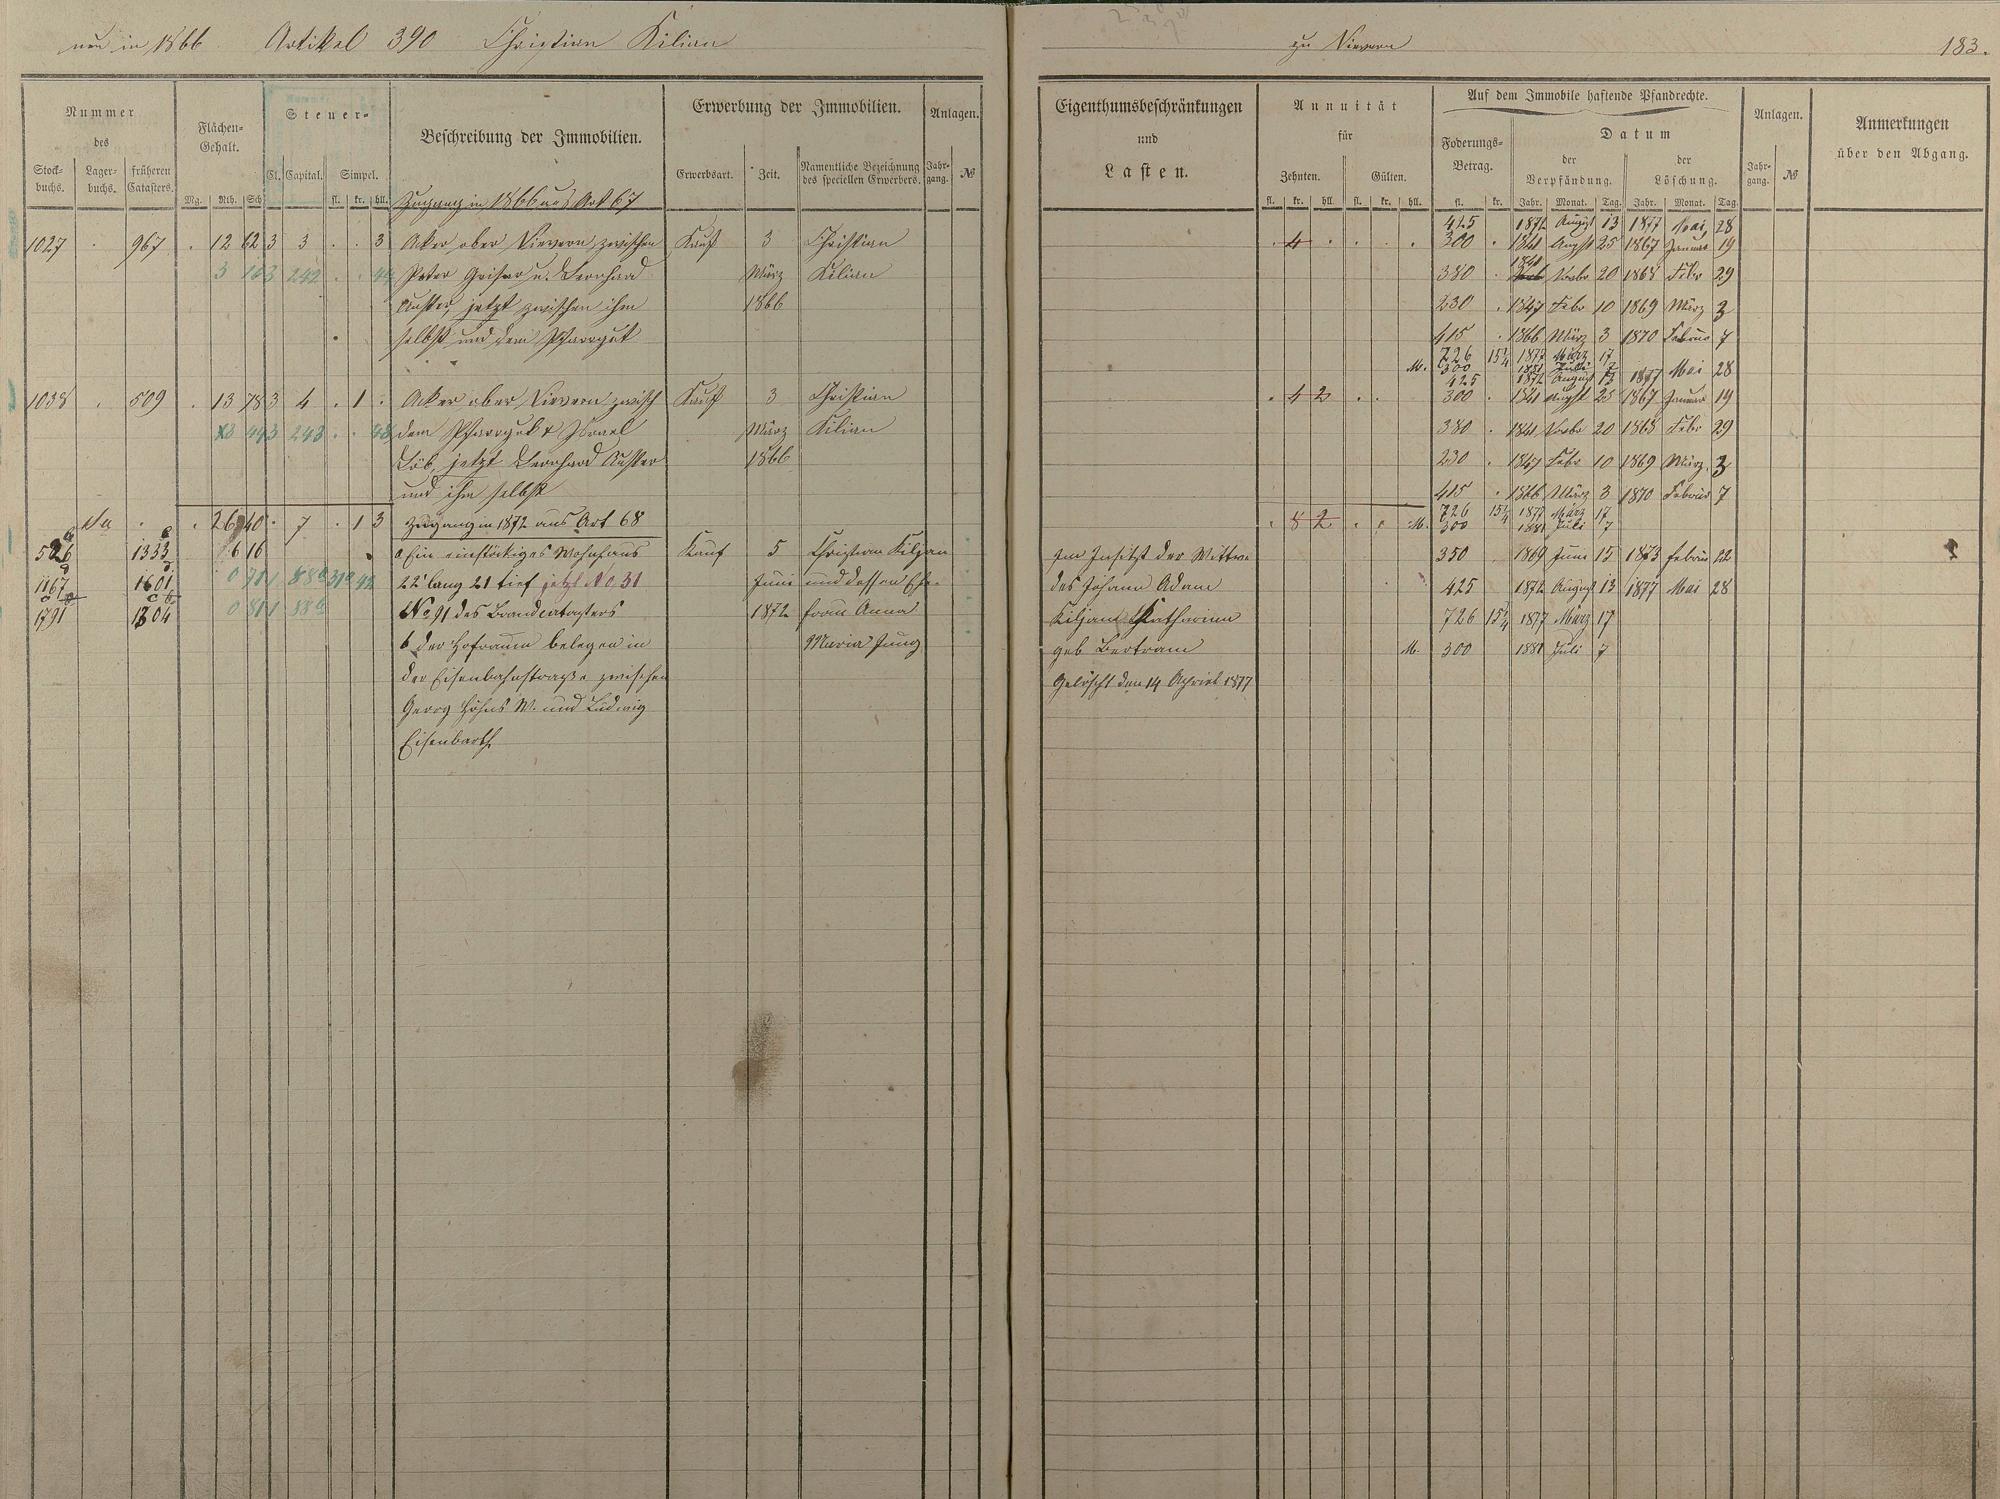 neu in 1866. Artikel 390 Christian Kilian
zu Nievern
183.
Nummer
des
Stockbuchs. Lagerbuchs. früheren Catasters.
Flächen-Gehalt.
Mg. Rth. Sch.
Steuer-
Cl. Capital. Simpel.
fl. kr. hll.
Beschreibung der Immobilien.
Erwerbung der Immobilien.
Erwerbsart. Zeit. Namentliche Bezeichnung des speciellen Erwerbers.
Anlagen.
Jahrgang. №
Eigenthumsbeschränkungen
und
Lasten.
Annuität
für
Zehnten. Gülten.
fl. kr. hll. fl. kr. hll.
Auf dem Immobile haftende Pfandrechte.
Foderungs-Betrag.
fl. kr.
Datum
der Verpfändung. der Löschung.
Jahr. Monat. Tag. Jahr. Monat. Tag.
Anlagen.
Jahrgang. №
Anmerkungen
über den Abgang.
Zugang in 1866 aus Art 67
425 1872 August 13 1877 Mai 28
1027 . 967 . 12 62 3 3 . . 3 Aker ober Nievern, zwischen Kauf 3 Christian
. 4 . . . . 300 . 1841 Augst 25 1867 Januar 19
242 . . Peter Geiser u. Leonhard März Kilian
380 . 1841 Novbr 20 1868 Febr 29
jetzt zwischen ihm 1866
230 . 1847 Febr 10 1869 März 3
selbst und dem Pfarrgut
415 . 1866 März 3 1870 Februar 7
726 15¼ 1877 März 17
M. 300 1881 Juli 7
425 1872 August 13 1877 Mai 28
1038 . 509 . 13 78 3 4 . 1 . Acker ober Nievern zwisch Kauf 3 Christian
. 4 2 . . 300 . 1841 Augst 25 1867 Januar 19
243 . . 48 dem Pfarrgut & Israel März Kilian
380 . 1841 Novbr 20 1868 Febr 29
Löb, jetzt Leonhard 1866
230 . 1847 Febr 10 1869 März 3
und ihm selbst
415 . 1866 März 3 1870 Februar 7
. 26 40 . 7 . 1 3 Zugang in 1872 aus Art 68
. 8 2 . . 726 15¼ 1877 März 17
M. 300 1881 Juli 7
526 1333 6 16 a Ein einstöckiges Wohnhaus Kauf 5 Christian Kiljan
Im Insitzt der Wittwe 350 1869 Juni 15 1873 Februar 22
1167 1601 22' lang 21 tief jetzt No 31 Juni und dessen Ehe-
des Johann Adam 425 1872 August 13 1877 Mai 28
1791 1804 No 91 des Brandcatasters 1872 frau Anna
Kiljan Katharina 726 15¼ 1877 März 17
b der Hofraum belegen in Maria Jung
geb Bertram M. 300 1881 Juli 7
der Eisenbahnstraße zwischen
Gelöscht den 14 April 1877
Georg Höhns W. und Ludwig
Eisenbarth